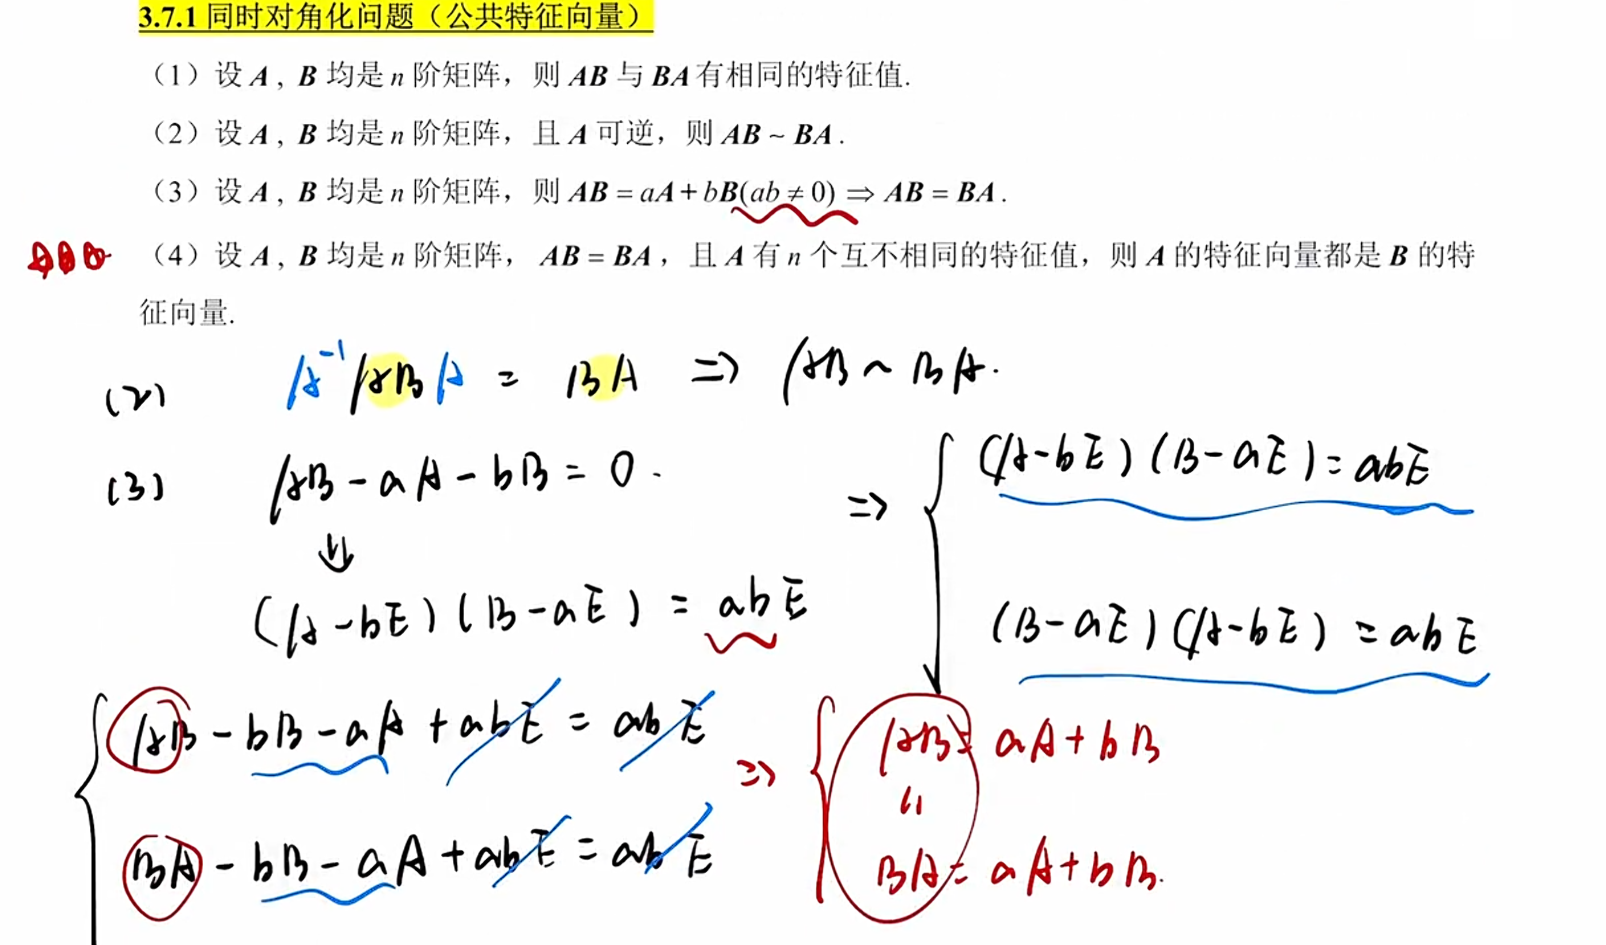 3.7.1 同时对角化问题（公共特征向量）
（1）设 A，B 均是 n 阶矩阵，则 AB 与 BA 有相同的特征值.
（2）设 A，B 均是 n 阶矩阵，且 A 可逆，则 AB ~ BA .
（3）设 A，B 均是 n 阶矩阵，则 AB = aA + bB(ab ≠ 0) ⇒ AB = BA .
（4）设 A，B 均是 n 阶矩阵， AB = BA ，且 A 有 n 个互不相同的特征值，则 A 的特征向量都是 B 的特
征向量.
(2) A⁻¹ABA = BA ⇒ AB ~ BA.
(3) AB - aA - bB = 0.
⇓
(A-bE)(B-aE) = abE
⇒ { (A-bE)(B-aE) = abE
(B-aE)(A-bE) = abE
{ AB - bB - aA + abE = abE
BA - bB - aA + abE = abE
⇒ { AB = aA + bB
=
BA = aA + bB.